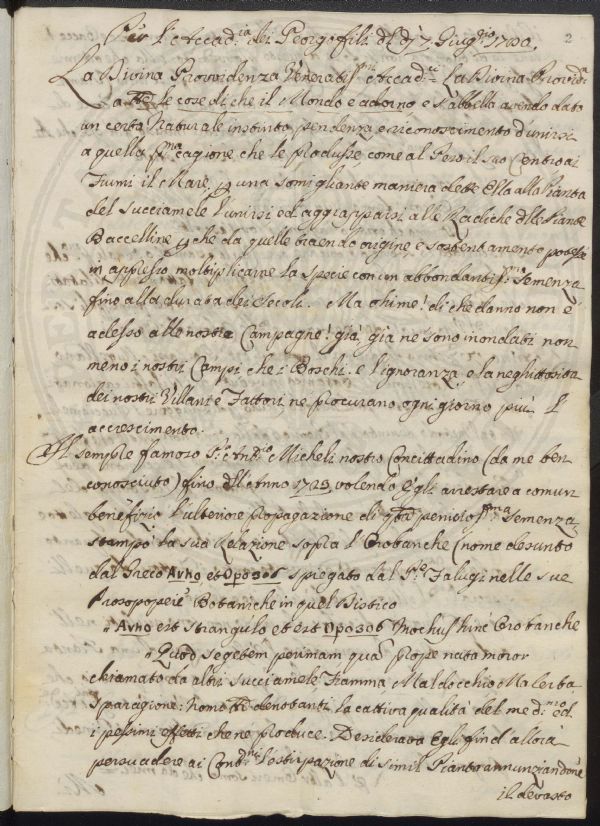 Per l'Accad.ia dei Georgofili del dì 7. Giug.no 1780.
2
La Divina Providenza Veneratiss.mi Accad.ci La Divina Provid.za
a tte le cose di che il Mondo è adorno e s'abbella avendo dato
un certo Naturale instinto pendenza e riconoscimento d'unirsi
a quella p.ma cagione, che le produsse come al Peso il suo Centro ai
Fiumi il Mare, p una somigliante maniera dette Ella alla Pianta
del Succiamele l'unirsi ed aggrapparsi alle Radiche delle Piante
Baccelline p che da quelle traendo origine e sostentamento potesse
in appresso moltiplicarne la specie con un abbondantiss.ma Semenza
fino alla durata dei Secoli. Ma ohime! di che danno non è
adesso alle nostre Campagne! già, già ne sono inondati non
meno i nostri Campi che i Boschi. e l'ignoranza, e la neghittosità
dei nostri Villani e Fattori ne procurano ogni giorno più l'
accrescimento.
Il sempre famoso P.r Ant.o Micheli nostro Concittadino (da me ben
conosciuto) fino dell'Anno 1723 volendo Egli arrestare a comun
benefizio l'ulteriore Propagazione di qta perniciosiss.ma Semenza
stampò la sua Relazione sopra l'Orobanche (nome desunto
dal Greco Αγχο et Οροβος spiegato dal P.re Falugi nelle sue
Prosopopeie Botaniche in quel Distico
" Αγχο est strangulo et est Οροβος Mochus hinc Orobanche
" Quod segetem perimam qua Prope nata moror
chiamato da altri Succiamele Fiamma, Mal d'occhio Mal'erba
Sparagione: Nomi tti denotanti la cattiva qualità del med.mo ed
i pessimi effetti che ne produce. Desiderava Egli fin d'allora
persuadere ai Cont.ni l'estirpazione di simil Pianta annunziandone
il devasto